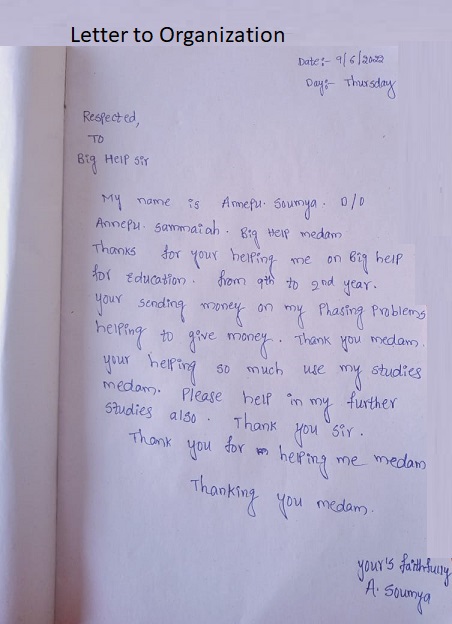 Letter to Organization
Date:- 9/6/2022
Day:- Thursday
Respected,
TO
Big Help sir
My name is Annepu. Soumya. D/O
Annepu. Sammaiah. Big Help medam
Thanks for your helping me on Big help
for Education. from 9th to 2nd year.
your sending money on my Phasing Problems
helping to give money. Thank you medam.
your helping so much use my studies
medam. Please help in my further
studies also. Thank you sir.
Thank you for helping me medam
Thanking you medam.
your's faithfully
A. Soumya